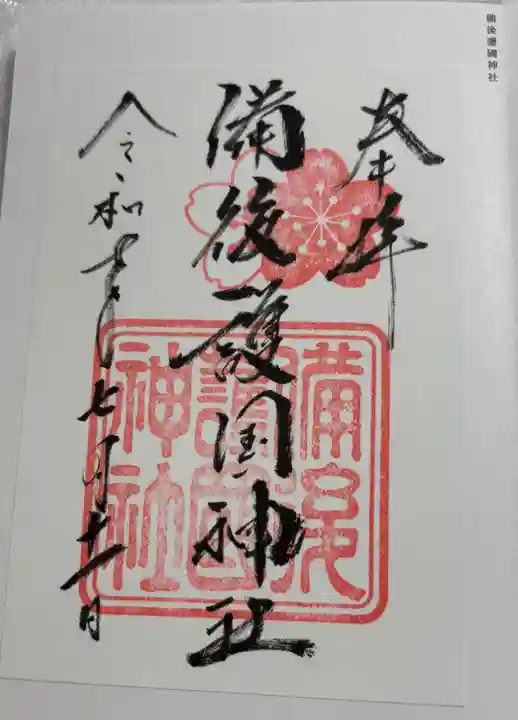 備後護國神社
奉拝
備後護国神社
令和 年七月十一日
備後
護國
神社